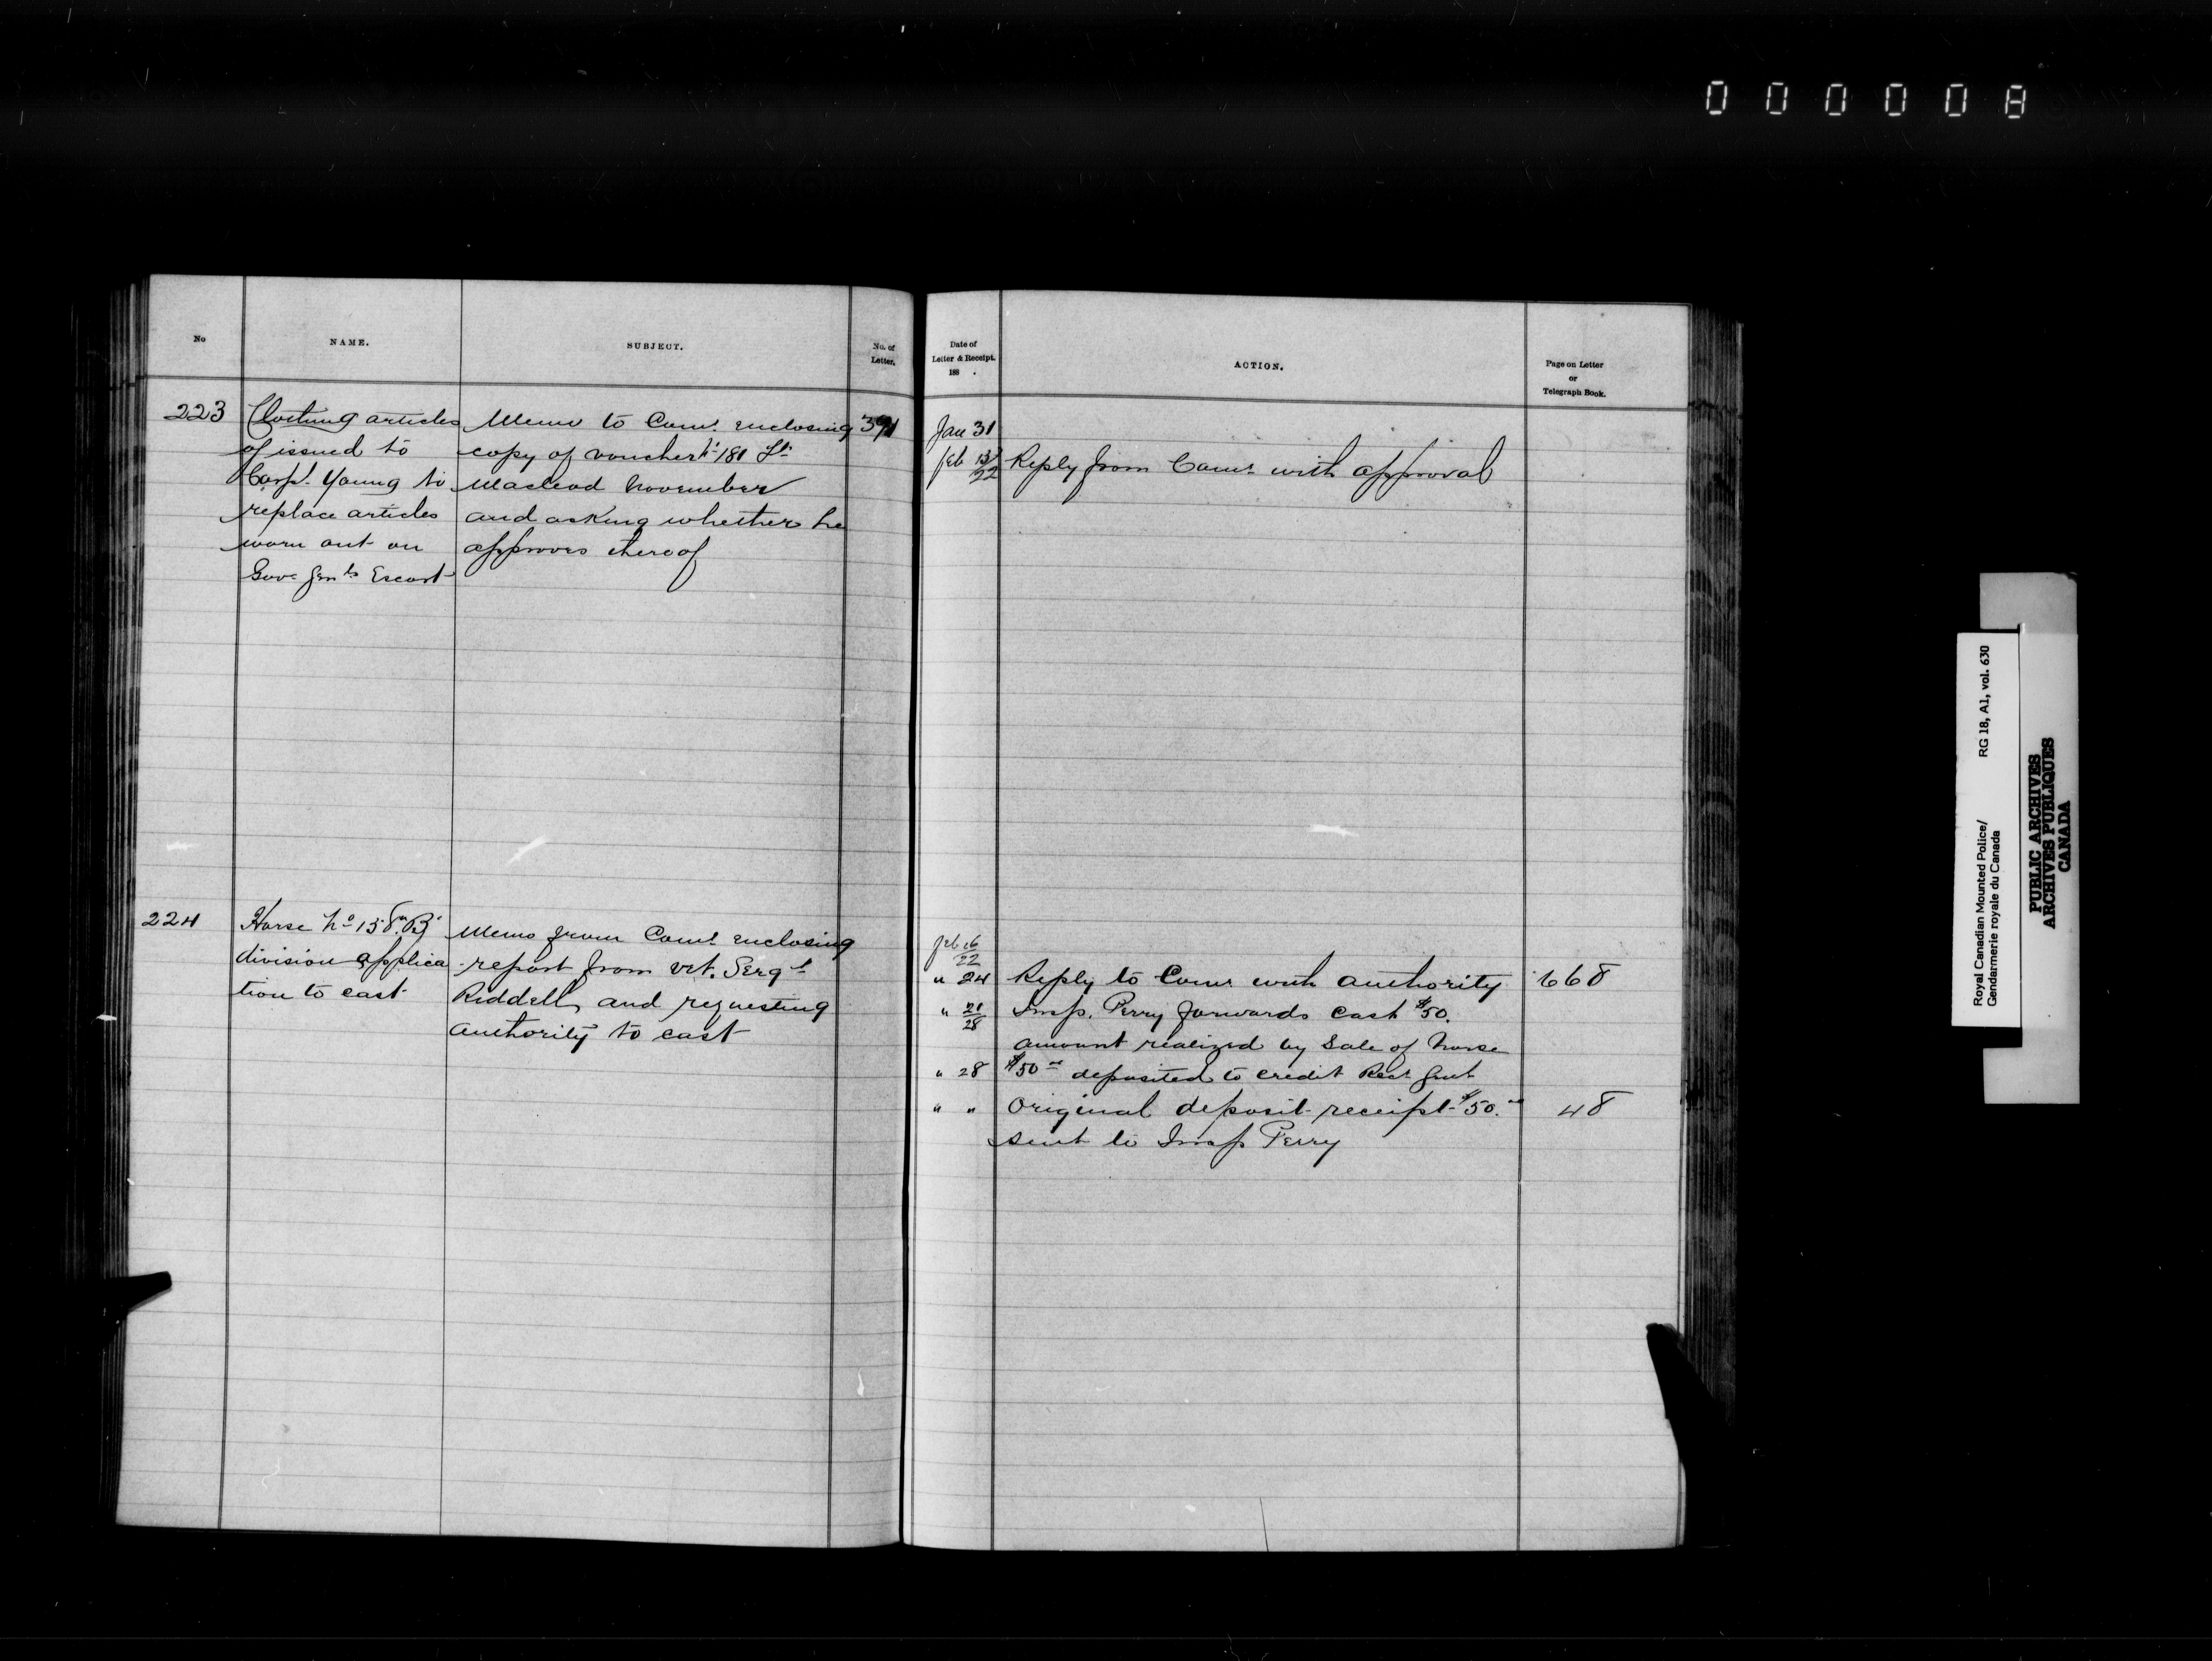 000008
No
NAME.
SUBJECT.
No. of
Letter.
Date of
Letter & Receipt.
188 .
ACTION.
Page on Letter
or
Telegraph Book.
223
Clothing articles
of issued to
Corpl. Young to
replace articles
worn out on
Gov. Genls Escort
Memo to Comr. enclosing
copy of voucher No 181 Ft.
Macleod November
and asking whether he
approves thereof
391
Jan 31
Feb 13/22
Reply from Comr with approval
224
Horse No 158 "B"
division applica
tion to cast
Memo from Comr enclosing
report from Vet. Sergt
Riddell, and requesting
authority to cast
Feb 16/22
" 24 Reply to Comr with authority 668
" 21/28 Insp. Perry forwards cash $50.
amount realized by Sale of horse
" 28 $50 deposited to credit Recr Genl
" " Original deposit receipt $50. 48
sent to Insp Perry
Royal Canadian Mounted Police/
Gendarmerie royale du Canada
RG 18, A1, vol. 630
PUBLIC ARCHIVES
ARCHIVES PUBLIQUES
CANADA